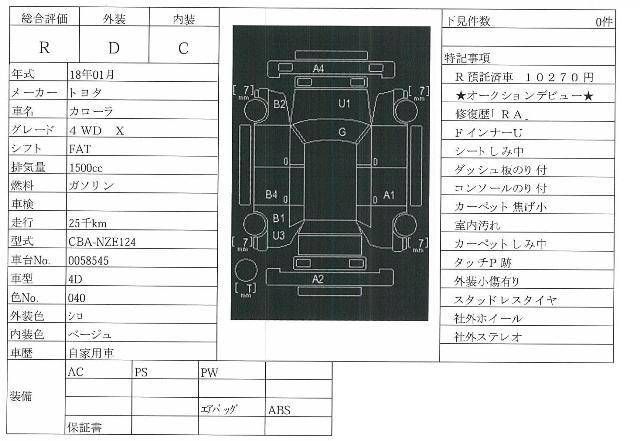 総合評価 外装 内装
R D C
年式 18年01月
メーカー トヨタ
車名 カローラ
グレード 4 WD X
シフト FAT
排気量 1500cc
燃料 ガソリン
車検
走行 25千km
型式 CBA-NZE124
車台No. 0058545
車型 4D
色No. 040
外装色 シロ
内装色 ベージュ
車歴 自家用車
装備
AC PS PW
エアバッグ ABS
保証書
A4
[ 7] mm [ 7] mm
B2 U1
G
B4 A1
B1
U3
[ 7] mm [ 7] mm
[ T] mm
A2
下見件数 0件
特記事項
R預託済車 10270円
★オークションデビュー★
修復歴「RA」
FインナーU
シートしみ中
ダッシュ板のり付
コンソールのり付
カーペット焦げ小
室内汚れ
カーペットしみ中
タッチP跡
外装小傷有り
スタッドレスタイヤ
社外ホイール
社外ステレオ